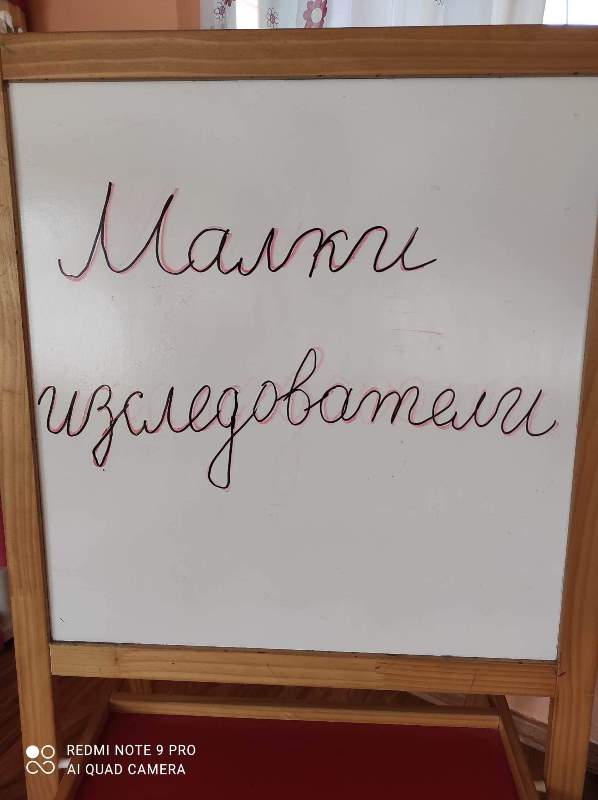 Малки
изследователи
REDMI NOTE 9 PRO
AI QUAD CAMERA